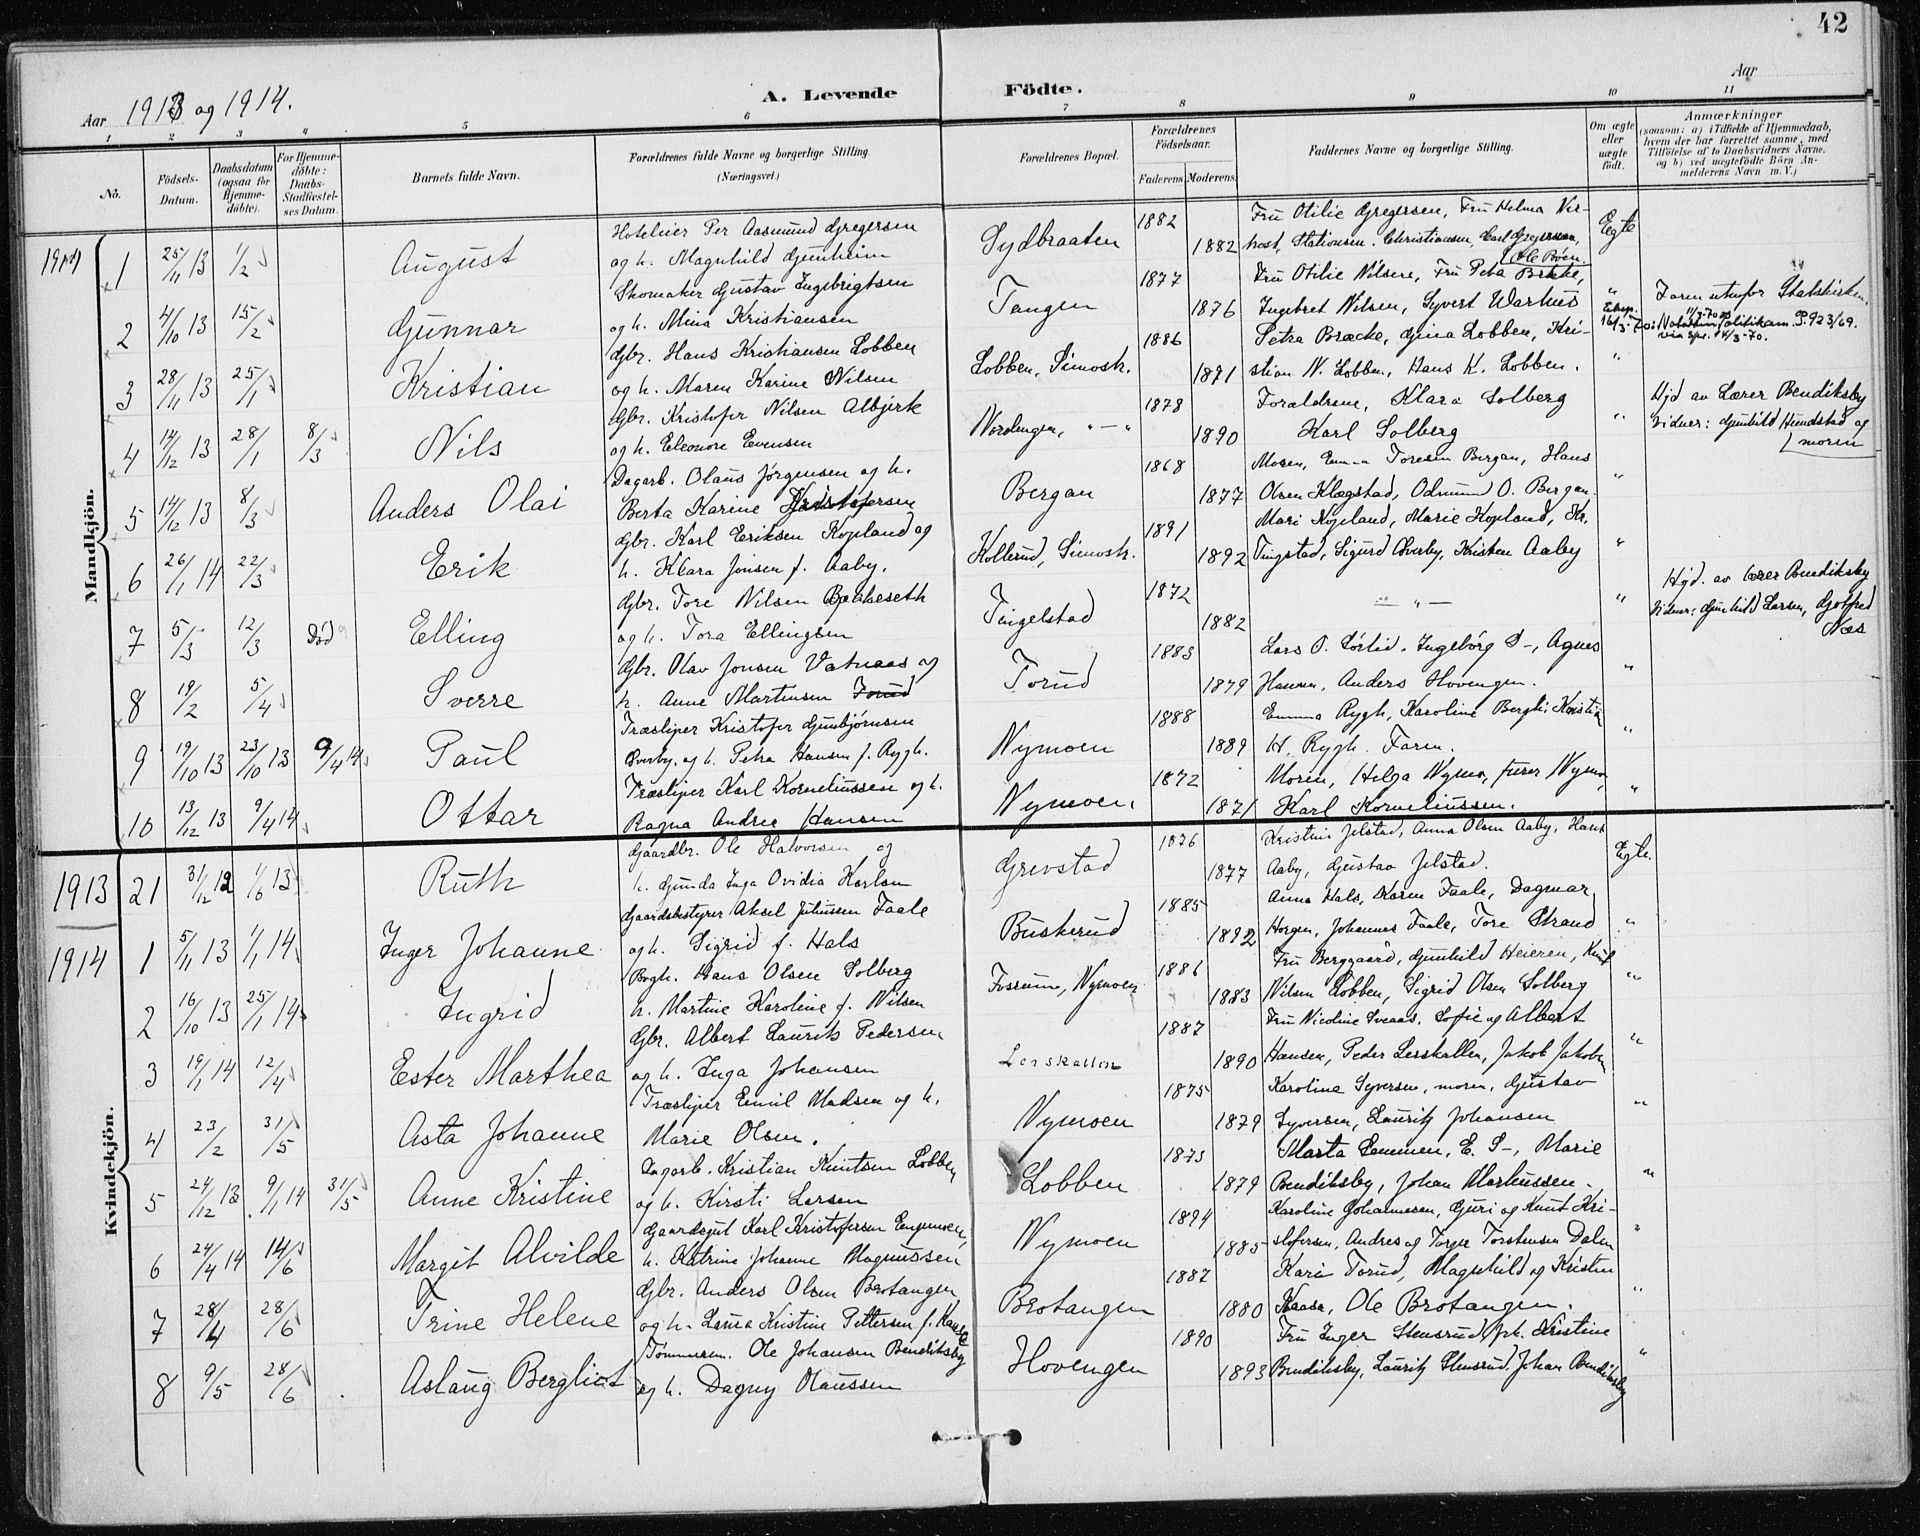 42
Aar 1913 og 1914.
A. Levende Fødte.
Aar
1 2 3 4 5 6 7 8 9 10 11
No.
Fødsels-Datum.
Daabsdatum (ogsaa for Hjemme-døbte).
For Hjemme-døbte: Daabs-Stadfæstel-ses Datum.
Barnets fulde Navn.
Forældrenes fulde Navne og borgerlige Stilling.
(Næringsvei.)
Forældrenes Bopæl.
Forældrenes Fødselsaar.
Faderens. Moderens.
Faddernes Navne og borgerlige Stilling.
Om ægte eller uægte født.
Anmærkninger
(saasom: a) i Tilfælde af Hjemmedaab, hvem der har forrettet samme, med Tilføielse af to Daabsvidners Navne, og b) ved uægtefødte Børn An-melderens Navn m. V.)
Mandkjøn.
1914
1 25/11 13 1/2 August Hoteleier Per Aasmund Gregersen
og h. Magnhild Gunheim
Sydbraaten 1882 1882
Fru Otilie Gregersen, Fru Helma Nir-
host, Stationsm. Christiansen, Carl Gregersen, Ole Bøen.
Egte
2 4/10 13 15/2 Gunnar Skomaker Gustav Ingebrigtsen
og h. Mina Kristiansen
Tangen 1877 1876
Fru Otilie Nilsen, Fru Petra Brække,
Ingebret Nilsen, Syvert Warhus
" Faren utenfor Statskirken.
3 28/11 13 25/1 Kristian Gbr. Hans Kristiansen Lobben
og h. Maren Karine Nilsen
Lobben, Simostr. 1886 1871
Petra Bræcke, Gina Lobben, Kri-
stian N. Lobben, Hans K. Lobben.
"
4 14/12 13 28/1 8/3 Nils Gbr. Kristofer Nilsen Albjerk
og h. Eleonore Evensen
Nordengen, " — " 1878 1890
Forældrene, Klara Solberg
Karl Solberg
" Hjd av Lærer Bendiksby
Vidner: Gunhild Hundstad og
moren
5 14/12 13 8/3 Anders Olai Dagarb. Olaus Jørgensen og h.
Berta Karine Kristofersen
Bergan 1868 1877
Moren, Emma Toresen Bergan, Hans
Olsen Klægstad, Odmund O. Bergan.
"
6 26/1 14 22/3 Erik Gbr. Karl Eriksen Kopland og
h. Klara Jonsen f. Aaby.
Kollerud, Simostr. 1891 1892
Mari Kopland, Marie Kopland, Kr.
Tingstad, Sigurd Overby, Kristen Aaby
"
7 5/3 12/3 Død Elling Gbr. Tore Nilsen Bakkeseth
og h. Tora Ellingsen
Tingelstad 1872 1882
— " —
" Hjd. av lærer Bendiksby
Vidner: Gunhild Larsen, Gotfred
Næs
8 19/2 5/4 Sverre Gbr. Olav Jonsen Vatnaas og
h. Anne Martinsen Forud
Torud 1883 1879
Lars O. Sørlid. Ingebörg S —, Agnes
Hansen, Anders Hovengen.
"
9 19/10 13 23/10 13 9/4 14 Paul Træsliper Kristofer Gunbjørnsen
Overby. og h. Petra Hansen f. Rygh.
Nymoen 1888 1889
Emma Rygh, Karoline Bergli Kristian
H. Rygh. Faren.
"
10 13/12 13 9/4 14 Ottar Træsliper Karl Korneliussen og h.
Ragna Andrea Hansen
Nymoen. 1872 1871
Moren, Helga Nymo, furer Nymo,
Karl Korneliussen.
"
Kvindekjön.
1913
21 31/12 12 1/6 13 Ruth Gaardbr. Ole Halvorsen og
h. Gunda Inga Ovidia Karlsen
Grevstad 1876 1877
Kristine Jelstad, Anna Olsen Aaby, Hans
Aaby, Gustav Jelstad.
Egte.
1914
1 5/11 13 1/1 14 Inger Johanne Gaardsbestyrer Aksel Juliussen Faale
og h. Sigrid f. Hals
Buskerud 1885 1892
Anna Hals, Karen Faale, Dagmar
Horgen, Johannes Faale, Tore Strand
"
2 16/10 13 25/1 14 Ingrid Bogh. Hans Olsen Solberg
h. Martine Karoline f. Nilsen
Fossum, Nymoen 1886 1883
Fru Berggaard, Gunhild Heieren, Knut
Nilsen Lobben, Sigrid Olsen Solberg
"
3 19/1 14 12/4 Ester Marthea Gbr. Albert Lauritz Pedersen
og h. Inga Johansen
Lerskallen 1887 1890
Fru Nicoline Sveaas, Sofie og Albert
Hansen, Peder Lerskallen, Jakob Jakobsen
"
4 23/2 31/5 Asta Johanne Træsliper Emil Madsen og h.
Marie Olsen.
Nymoen 1875 1879
Karoline Syversen, moren, Gustav
Syversen, Lauritz Johansen
"
5 24/12 13 9/1 14 31/5 Anne Kristine Dagarb. Kristian Knutsen Lobben
og h. Kirsti Larsen
Lobben 1873 1879
Marta Lommen, E. S —, Marie
Bendiksby, Johan Markussen.
"
6 24/4 14 14/6 Margit Alvilde Gaardsgut Karl Kristofersen Engemoen,
h. Katrine Johanne Magnussen
Nymoen 1894 1885
Karoline Johannesen, Guri og Knut Kri-
stofersen, Andres og Torger Torstensen Dalen
"
7 28/4 28/6 Trine Helene Gbr. Anders Olsen Brotangen
og h. Laura Kristine Pettersen f. Kaasa
Brotangen 1887 1880
Kari Torud, Magnhild og Kristen
Kaasa, Ole Brotangen.
"
8 9/5 28/6 Aslaug Bergliot Tømmerm. Ole Johansen Bendiksby
og h. Dagny Olaussen
Hovengen 1890 1893
Fru Inger Stensrud, frk. Kristine
Bendiksby, Lauritz Stensrud, Johan Bendiksby
"